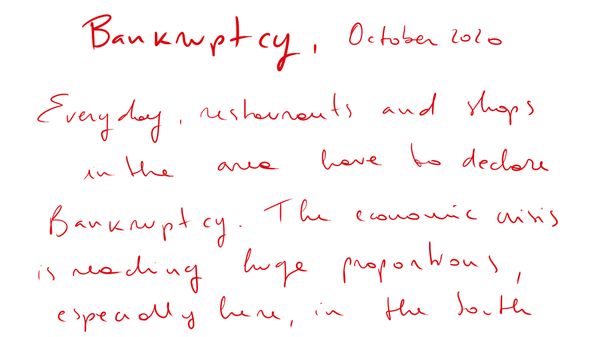 Bankruptcy, October 2020
Everyday, restaurants and shops
in the area have to declare
Bankruptcy. The economic crisis
is reaching huge proportions,
especially here, in the South